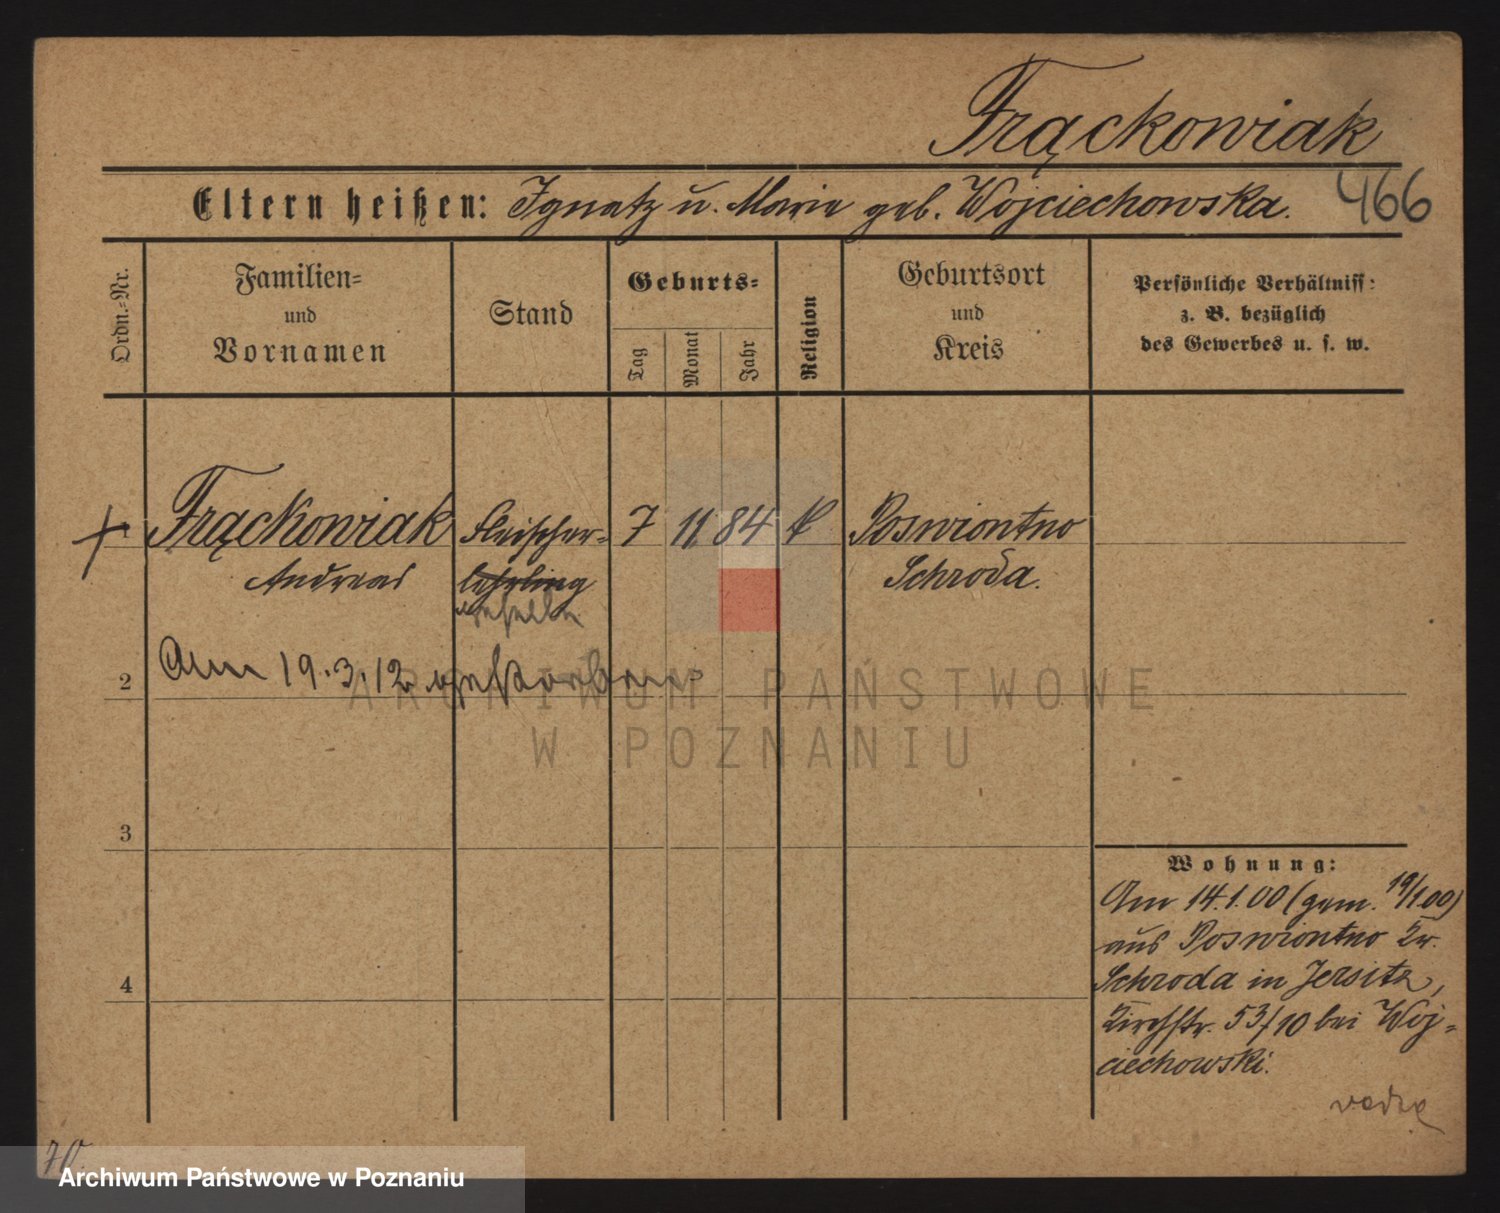 Frąckowiak
466
Eltern heißen: Ignatz u. Marie geb. Wojciechowska.
Ordn.-Nr.
Familien-
und
Vornamen
Stand
Geburts-
Tag
Monat
Jahr
Religion
Geburtsort
und
Kreis
Persönliche Verhältniss:
z. B. bezüglich
des Gewerbes u. s. w.
Frąckowiak Fleischer- 7 11 84 k Poswiontno
Andreas lehrling Schroda.
geselle
Am 19.3.12 gestorben
2
3
4
Wohnung:
Am 14.1.00 (gem. 19/1.00)
aus Poswiontno Kr.
Schroda in Jersitz,
Kirchstr. 53/10 bei Woj-
ciechowski.
70.
ARCHIWUM PAŃSTWOWE
W POZNANIU
Archiwum Państwowe w Poznaniu